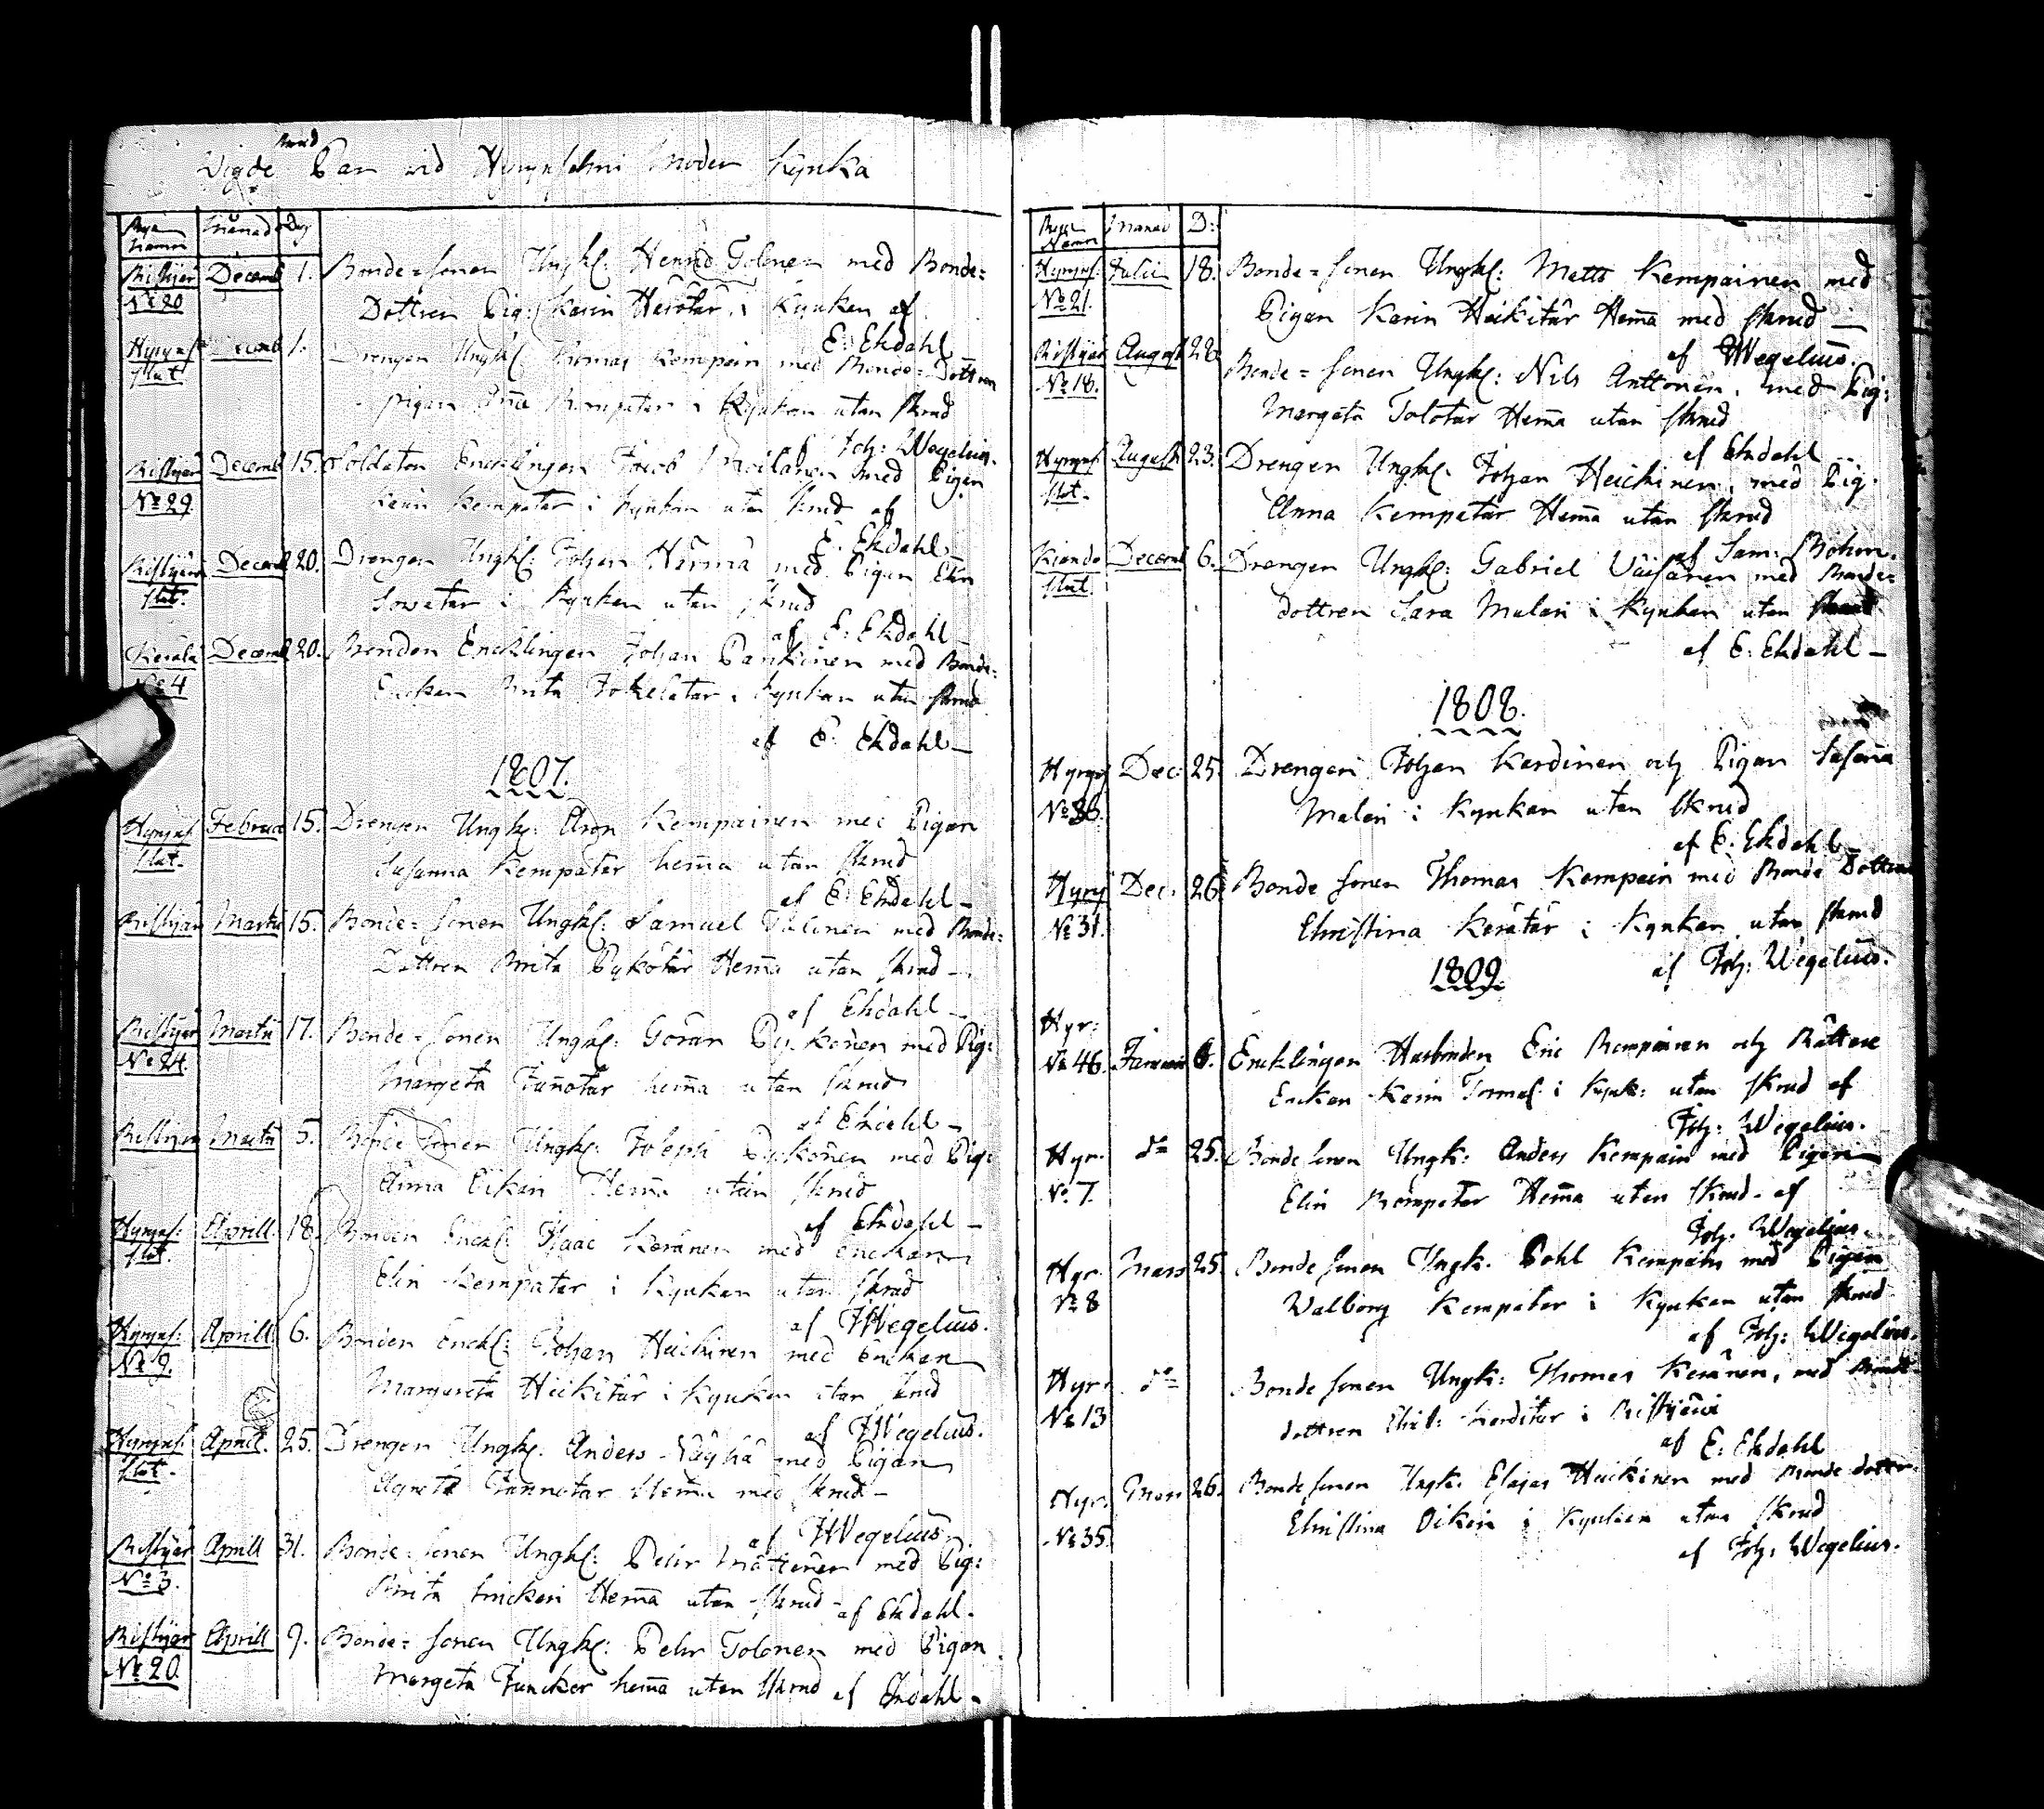 Vigde Par vid Hyrynsalmi Moder Kyrka
Bya Namn Månad Dag
Ristijer Decemb 1. Bonde-sonen Ungkl: Henrid Tolonen med Bonde-
No 20 Dottren Pig: Karin Härötär i Kyrkan af
E: Ehdahl
Hyryns 1. Drengen Ungkl: Thomas Kempain med Bonde-Dottren
slut pigan Kempatar i Kyrkan utan skrud
af Joh: Wegelius.
Ristijer Decemb 15. Soldaten Encklingen Jacob Moilanen med Pigan
No 29 Karin Kempatar i Kyrkan utan skrud af
E: Ehdahl
Ristijer Decemb 20. Drengen Ungkl: Johan Härmä med Pigan
slut. i Kyrkan utan skrud
af E: Ehdahl
Decemb 20. Bonden Encklingen Johan Pankinen med Bonde-
No 4 Enckan Brita Jokelatar i Kyrkan utan skrud
af E: Ehdahl
1807.
Hyryns Februa 15. Drengen Ungkl: Aron Kempainen med Pigan
slut. Susanna Kempatar hemma utan skrud
af E: Ehdahl
Ristijär Martii 15. Bonde-sonen Ungkl: Samuel med Bonde-
Dottren Brita Pykötär Hemma utan skrud
af Ehdahl
Ristijer Martii 17. Bonde-sonen Ungkl: Göran Pykönen med Pig:
No 24. Margeta Junnotar hemma utan skrud
af Ehdahl
Ristijer Martii 5. Bonde sonen Ungkl: Joseph Pykönen med Pig:
Anna Hemma utan skrud
af Ehdahl
Hyryns: Aprill 18. Bonden Enckl: Isaac Keränen med Enckan
slut Elin Kempatar i Kyrkan utan skrud
af JWegelius.
Hyryns: Aprill 6. Bonden Enckl: Johan Heickinen med Enckan
No 9. Margareta Heikitär i Kyrkan utan skrud
af JWegelius.
Hyryns: Aprill. 25. Drengen Ungkl. Anders Näyhä med Pigan
slut. Agneta Junnotar Hemma med skrud
af JWegelius
Ristijer Aprill 31. Bonde-sonen Ungkl: Pehr Mättönen med Pig:
No 3. Brita Hemma utan skrud af Ehdahl.
Ristijer Aprill 9. Bonde-sonen Ungkl: Pehr Tolonen med Pigan
No 20 Margeta Juncker hemma utan skrud af Ehdahl
Bya Namn Månad D:
Hyryns: Julii 18. Bonde-sonen Ungkl: Matts Kempainen med
No 21. Pigan Karin Heikitär Hemma med skrud
af JWegelius.
Ristijer August 22 Bonde-sonen Ungkl: Nils Anttonen, med Pig:
No 18. Margeta Tolotar Hemma utan skrud
af Ehdahl
Hyryns: August 23. Drengen Ungkl. Johan Heickinen, med Pig.
slut. Anna Kempatar Hemma utan skrud
af Sam: Böhm.
Kianda Decemb 6. Drengen Ungkl: Gabriel Väisänen med Bonde-
slut. dottren Sara Malari i Kyrkan utan skrud
af E: Ehdahl
1808.
Hyryns Dec: 25. Drengen Johan Kardinen och Pigan Susanna
No 36. Malari i Kyrkan utan skrud
af E. Ehdahl
Hyryns Dec: 26. Bonde sonen Thomas Kempain med Bonde Dottren
No 31. Christina Kerätär i Kyrkan utan skrud
af Joh: Wegelius.
1809.
Hyr:
No 46. Januari 6. Encklingen Husbonden Eric Kempainen och
Enckan Karin i Kyrk: utan skrud af
Joh: Wegelius.
Hyr. do 25. Bonde sonen Ungk: Anders Kempain med Pigan
No 7. Elin Kempatar Hemma utan skrud. af
Joh: Wegelius.
Hyr. Mars 25. Bonde sonen Ungk. Pohl Kempain med Pigan
No 8 Walborg Kempatar i Kyrkan utan skrud
af Joh: Wegelius.
Hyr. do Bonde sonen Ungk: Thomas Keränen, med Bonde
No 13 dottren Christ: Karditar i Ristijärvi
af E: Ehdahl
Hyr. Mars 26. Bonde sonen Ungk. Elajas Heickinen med Bonde dottr.
No 35. Christina Oikari i Kyrkan utan skrud
af Joh: Wegelius.